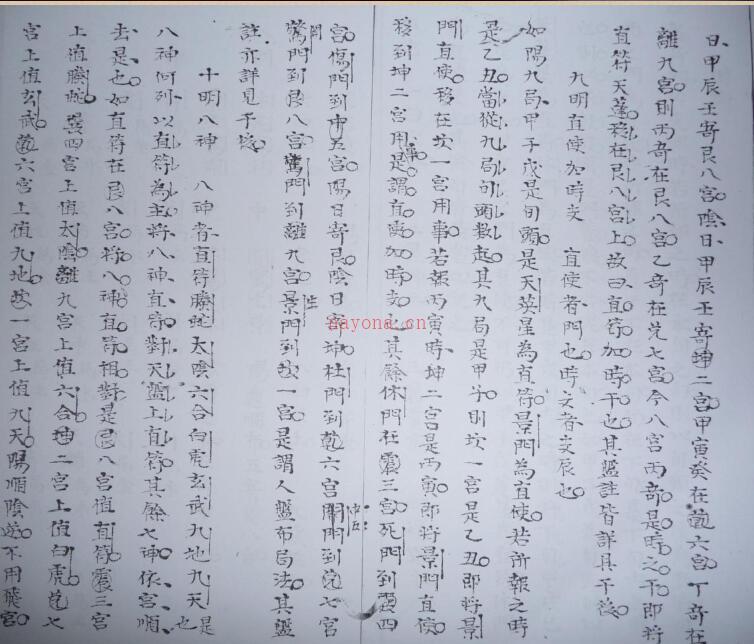 日甲辰壬寄艮八宮陰日甲辰壬寄坤二宮甲寅癸在乾六宮丁奇在
離九宮則丙奇在艮八宮乙奇在兌七宮今八宮丙奇是時之干即將
直符天蓬移在艮八宮上故曰直符加時干也其盤註皆詳具于後
九明直使加時支 直使者門也時支者支辰也
如陽九局甲子戊是旬頭是天英星為直符景門為直使若所報之時
是乙丑當從九局旬頭数起其九局是甲子則坎一宮是乙丑即將景
門直使移在坎一宮用事若報丙寅時坤二宮是丙寅即將景門直使
移到坤二宮用事是謂直使加時支也其餘休門在震三宮死門到四
宮傷門到中五宮陽日寄艮陰日寄坤杜門到乾六宮開門到兌七宮
驚門到艮八宮門到離九宮景門到坎一宮是謂人盤布局法其盤
註亦詳見于後
十明八神 八神者直符騰蛇太陰六合白虎玄武九地九天是也
八神何列以直符為主將八神直符對天盤上直符其餘七神依宮順
去是也如直符在艮八宮將八神直符相對是艮八宮值直符震三宮
上值騰蛇巽四宮上值太陰離九宮上值六合坤二宮上值白虎兌七
宮上值玄武乾六宮上值九地坎一宮上值九天陽順陰逆不用飛宮
nayona.cn